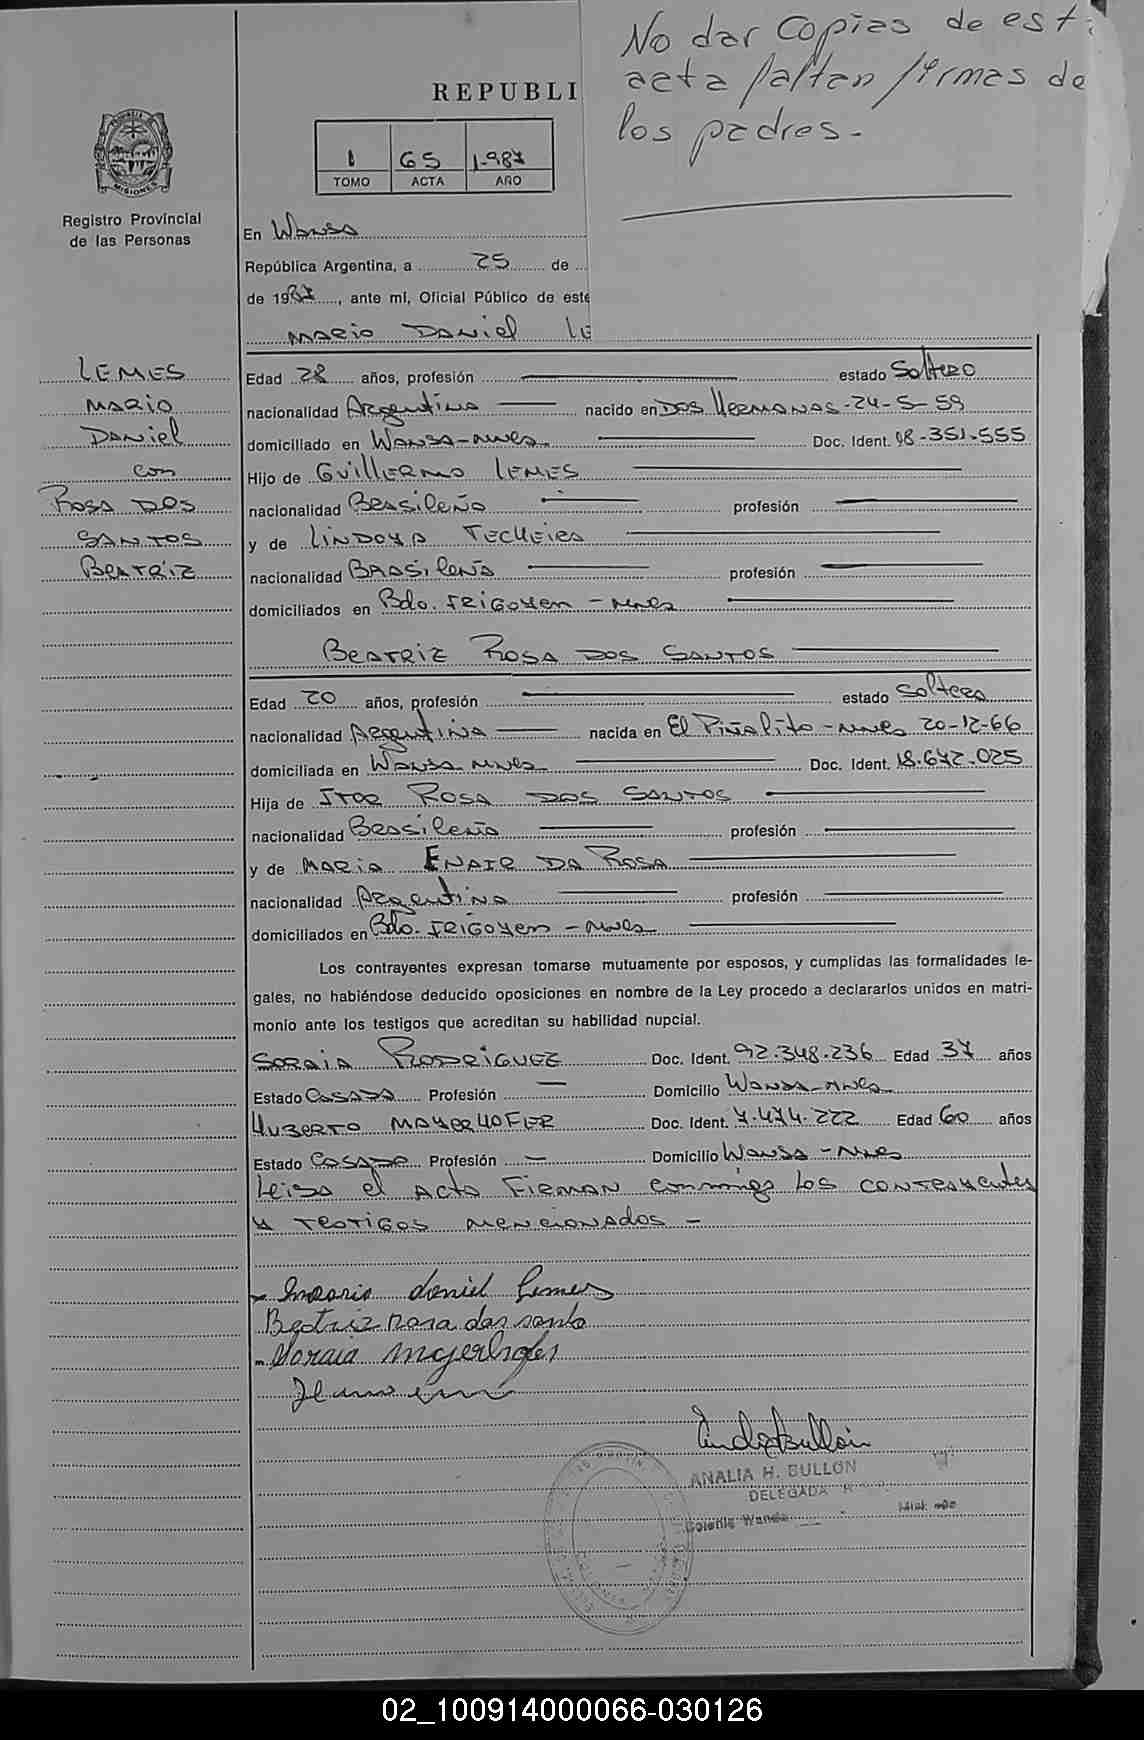 No dar copias de est
acta faltan firmas de
los padres.-
REPUBLI
1 65 1.987
TOMO ACTA AÑO
PROVINCIA DE
MISIONES
Registro Provincial
de las Personas
En Wanda
República Argentina, a 25 de
de 1987, ante mí, Oficial Público de este
MARIO DANIEL LE
LEMES
MARIO
DANIEL
con
ROSA DOS
SANTOS
BEATRIZ
Edad 28 años, profesión estado Soltero
nacionalidad Argentina nacido en DOS HERMANAS-24-5-59
domiciliado en WANDA-MNES. Doc. Ident. 18-351-555
Hijo de GUILLERMO LEMES
nacionalidad BRASILEÑO profesión
y de LINDOYA TECHEIRA
nacionalidad BRASILEÑA profesión
domiciliados en Bdo. IRIGOYEN - MNES
BEATRIZ ROSA DOS SANTOS
Edad 20 años, profesión estado Soltera
nacionalidad Argentina nacida en El Piñalito-MNES 20-12-66
domiciliada en WANDA MNES Doc. Ident. 18.642.025
Hija de ITOR ROSA DOS SANTOS
nacionalidad Brasileña profesión
y de MARIA ENAIR DA ROSA
nacionalidad Argentina profesión
domiciliados en Bdo. IRIGOYEN - MNES
Los contrayentes expresan tomarse mutuamente por esposos, y cumplidas las formalidades le-
gales, no habiéndose deducido oposiciones en nombre de la Ley procedo a declararlos unidos en matri-
monio ante los testigos que acreditan su habilidad nupcial.
SORAIA RODRIGUEZ Doc. Ident. 92.348.236 Edad 37 años
Estado CASADA Profesión — Domicilio WANDA-MNES
HUBERTO MAYERHOFER Doc. Ident. 7.474.222 Edad 60 años
Estado CASADO Profesión — Domicilio WANDA - MNES
Leida el ACTA FIRMAN conmigo LOS CONTRAYENTES
Y TESTIGOS MENCIONADOS -
Mario daniel Lemes
Beatriz Rosa dos santo
Soraia Mayerhofer
ANALIA H. BULLON
DELEGADA
Colonia Wanda
02_100914000066-030126